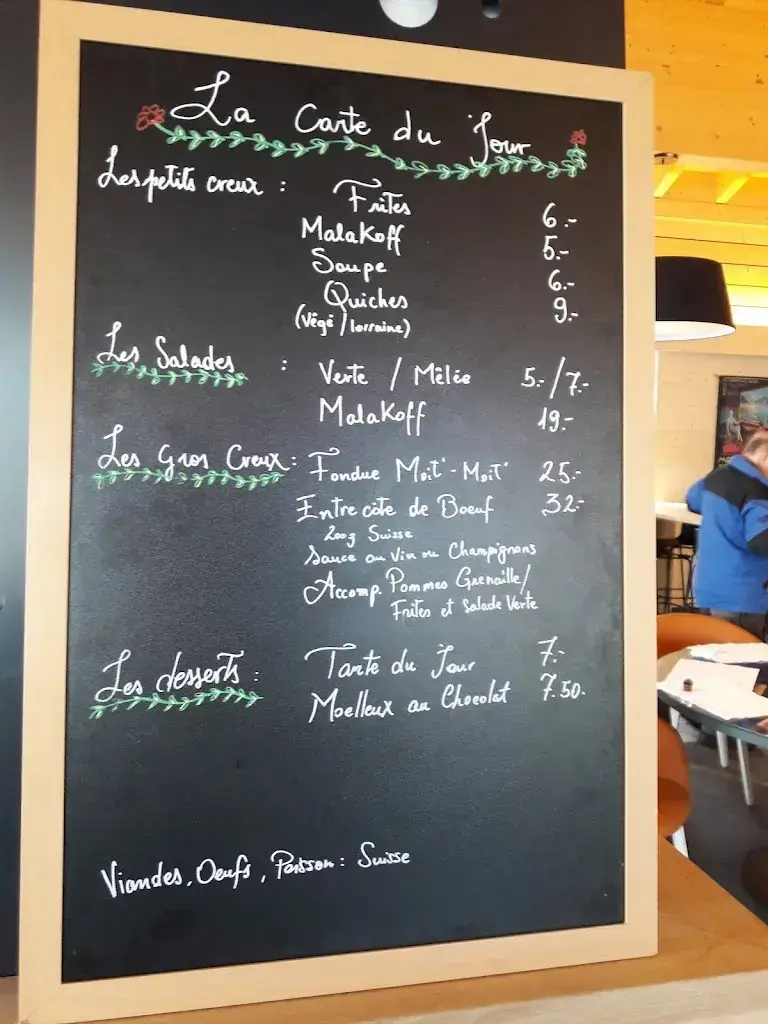 La Carte du Jour
Les petits creux : Frites 6.-
Malakoff 5.-
Soupe 6.-
Quiches 9.-
(Végé / lorraine)
Les Salades : Verte / Mêlée 5.- / 7.-
Malakoff 19.-
Les Gros Creux : Fondue Moit'-Moit' 25.-
Entrecôte de Boeuf 32.-
200g Suisse
Sauce au Vin ou Champignons
Accomp. Pommes Grenaille /
Frites et Salade Verte
Les desserts : Tarte du Jour 7.-
Moelleux au Chocolat 7.50.-
Viandes, Oeufs, Poisson : Suisse